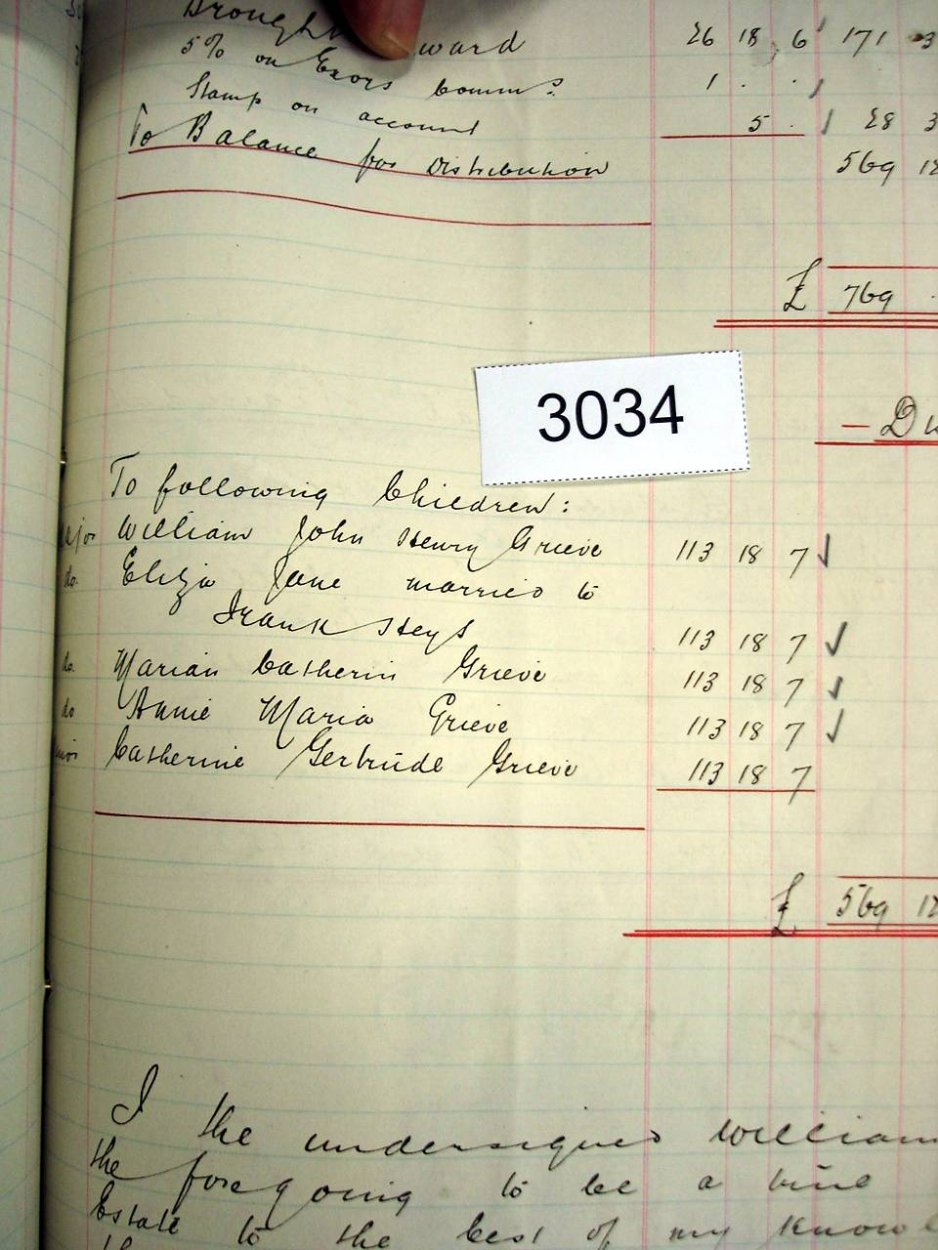 Brought ward 26 18 6 171 3
5% on Exors Commn: 1 . .
Stamp on account 5 . 28 3
To Balance for Distribution 569 12
£ 769 .
3034
To following Children:
William John Henry Grieve 113 18 7
do. Eliza Jane married to
Frank Heys 113 18 7
do. Marian Catherin Grieve 113 18 7
do Annie Maria Grieve 113 18 7
Catherine Gertrude Grieve 113 18 7
£ 569 12
I the undersigned William
the foregoing to be a true
Estate to the best of my know